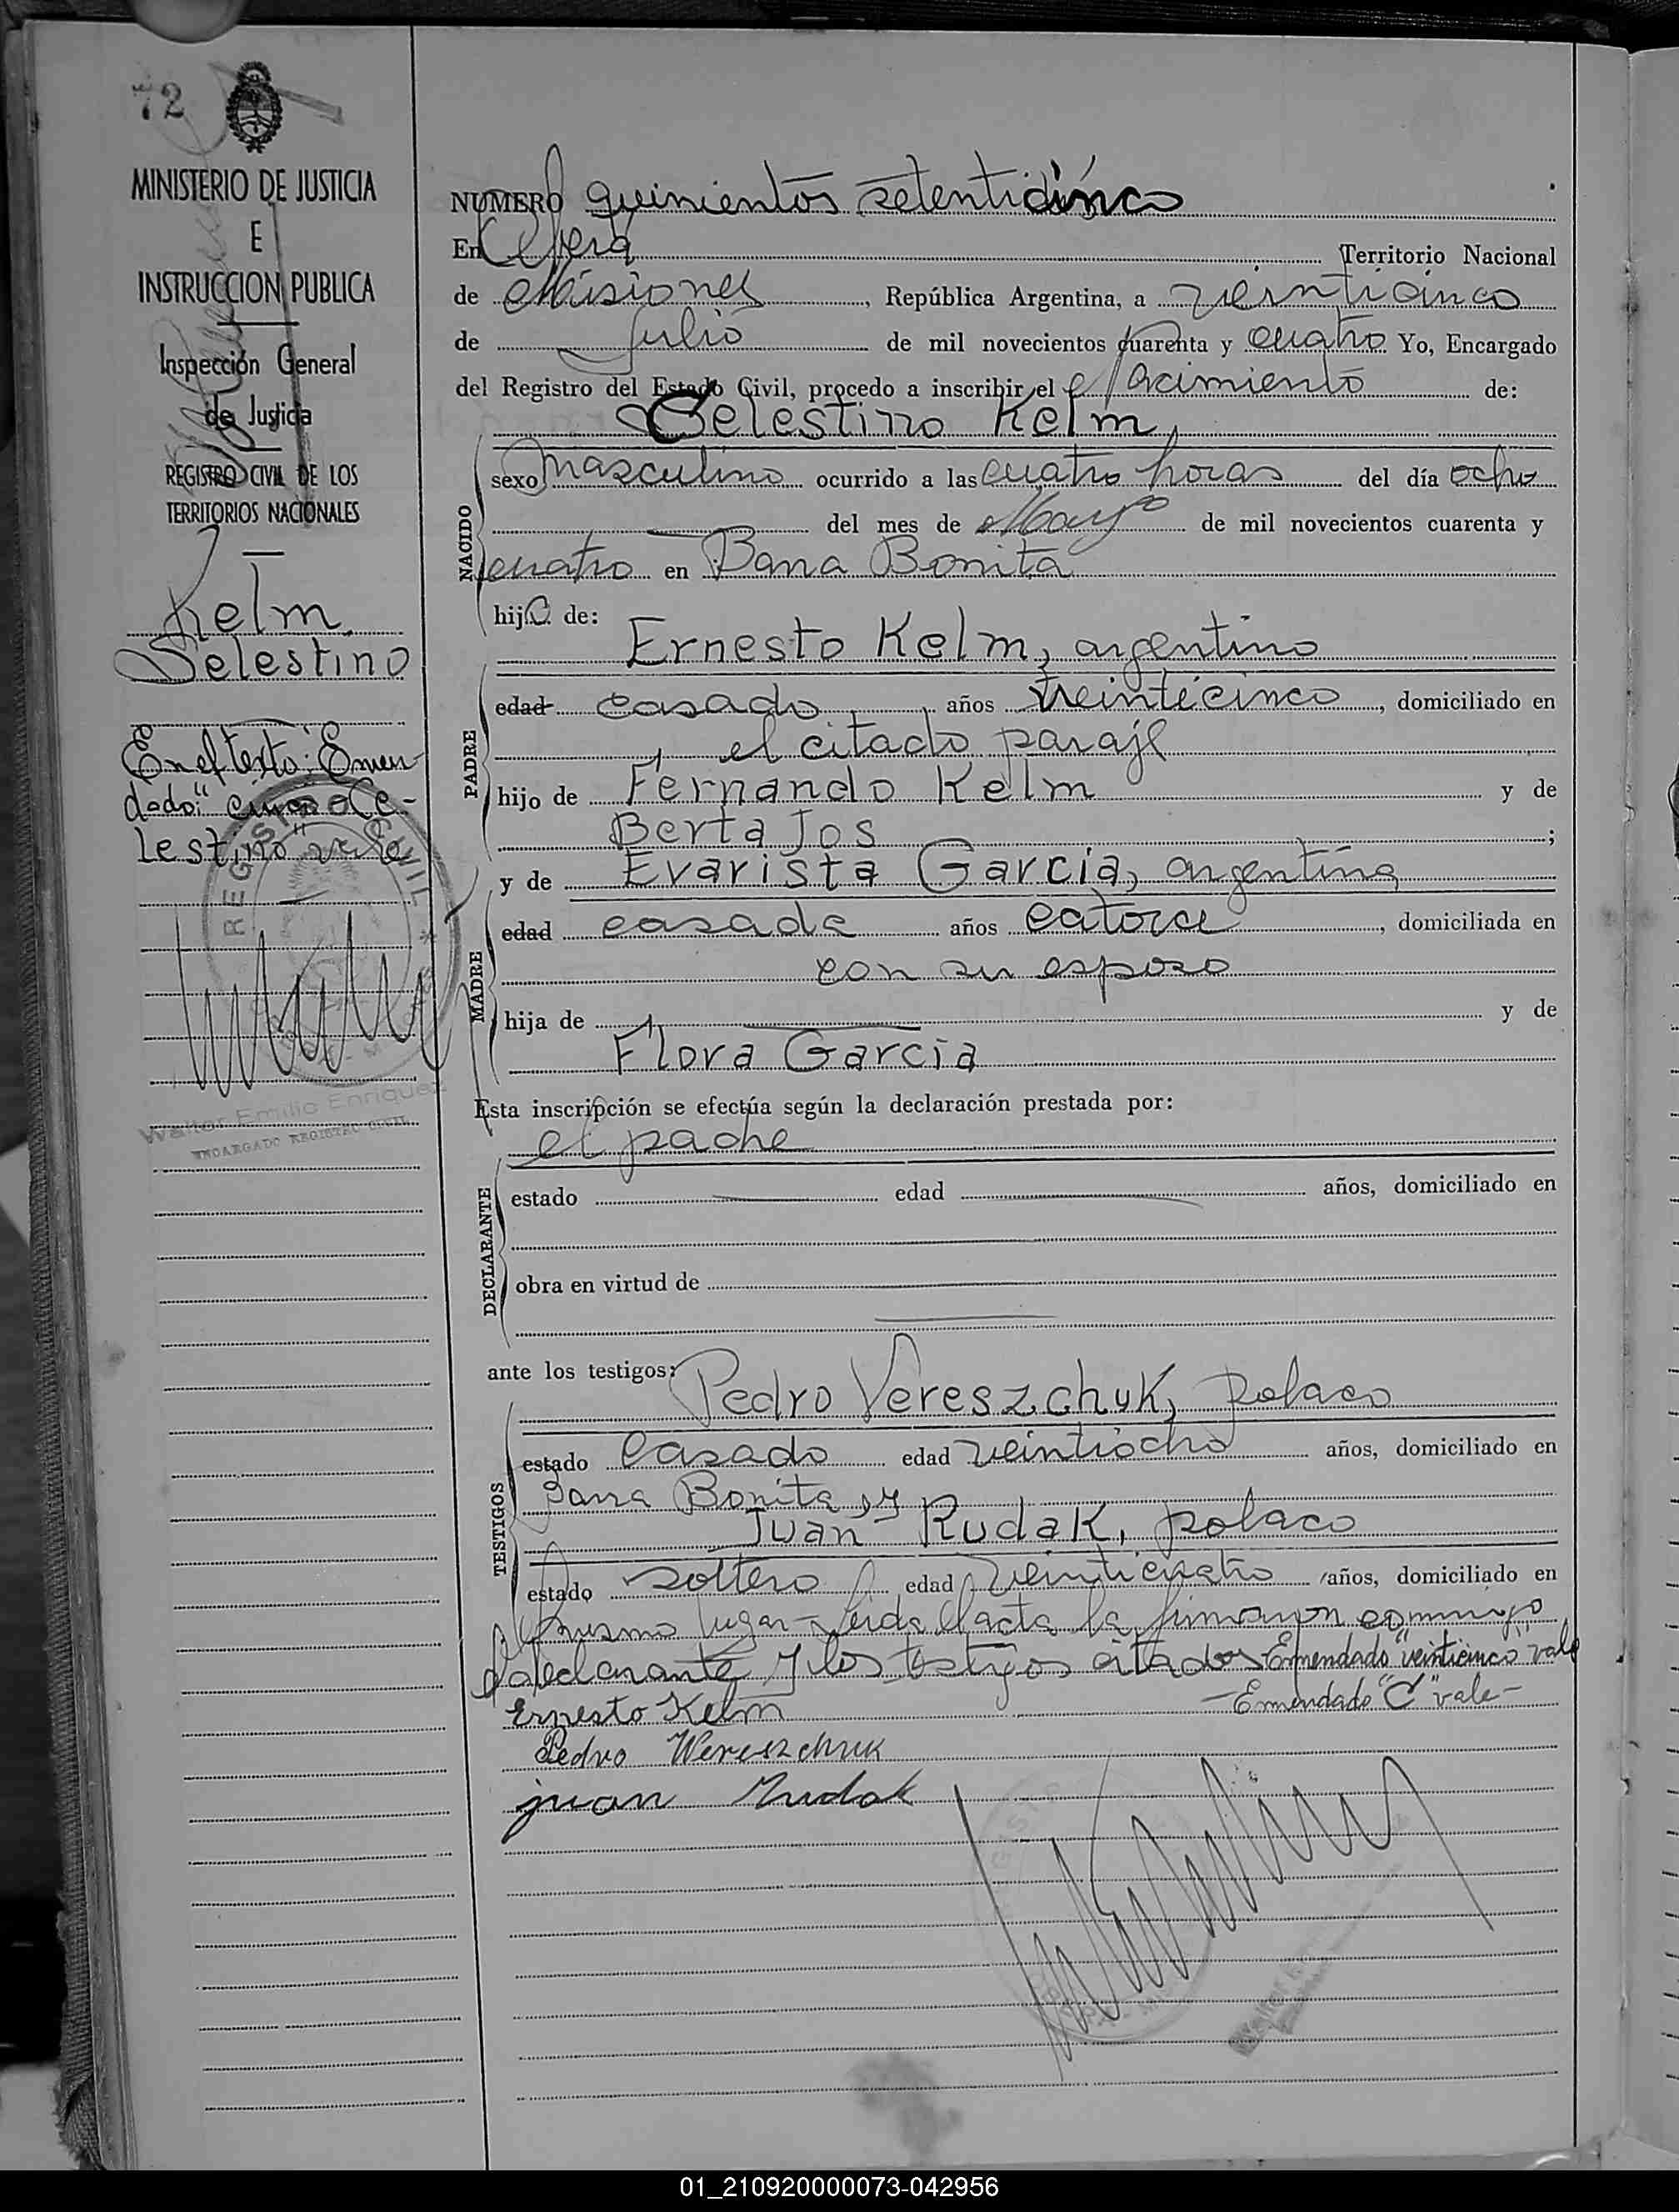 72
MINISTERIO DE JUSTICIA
E
INSTRUCCION PUBLICA
Inspección General
de Justicia
REGISTRO CIVIL DE LOS
TERRITORIOS NACIONALES
Kelm
Selestino
En el texto: Enmen-
dado: "cinco e Ce-
lestino" vale
REGISTRO CIVIL
Walter Emilio Enriquez
ENCARGADO REGISTRO CIVIL
NUMERO quinientos setenticinco
En Oberá Territorio Nacional
de Misiones, República Argentina, a veinticinco
de Julio de mil novecientos cuarenta y cuatro Yo, Encargado
del Registro del Estado Civil, procedo a inscribir el Nacimiento de:
Celestino Kelm,
NACIDO
sexo masculino ocurrido a las cuatro horas del día ocho
del mes de Mayo de mil novecientos cuarenta y
cuatro en Barra Bonita
hijo de:
Ernesto Kelm, argentino
PADRE
edad casado años veintecinco, domiciliado en
el citado paraje
hijo de Fernando Kelm y de
Berta Jos;
y de Evarista García, argentina
MADRE
edad casada años catorce, domiciliada en
con su esposo
hija de y de
Flora García
Esta inscripción se efectúa según la declaración prestada por:
el padre
DECLARANTE
estado edad años, domiciliado en
obra en virtud de
ante los testigos: Pedro Vereszchuk, polaco
TESTIGOS
estado casado edad veintiocho años, domiciliado en
Barra Bonita, y
Juan Rudak, polaco
estado soltero edad veinticuatro años, domiciliado en
el mismo lugar - Leida el acta la firmaron conmigo
el declarante y los testigos citados Enmendado "veinticinco" vale
- Enmendado "C" vale -
Ernesto Kelm
Pedro Wereszchuk
juan Rudak
01_210920000073-042956